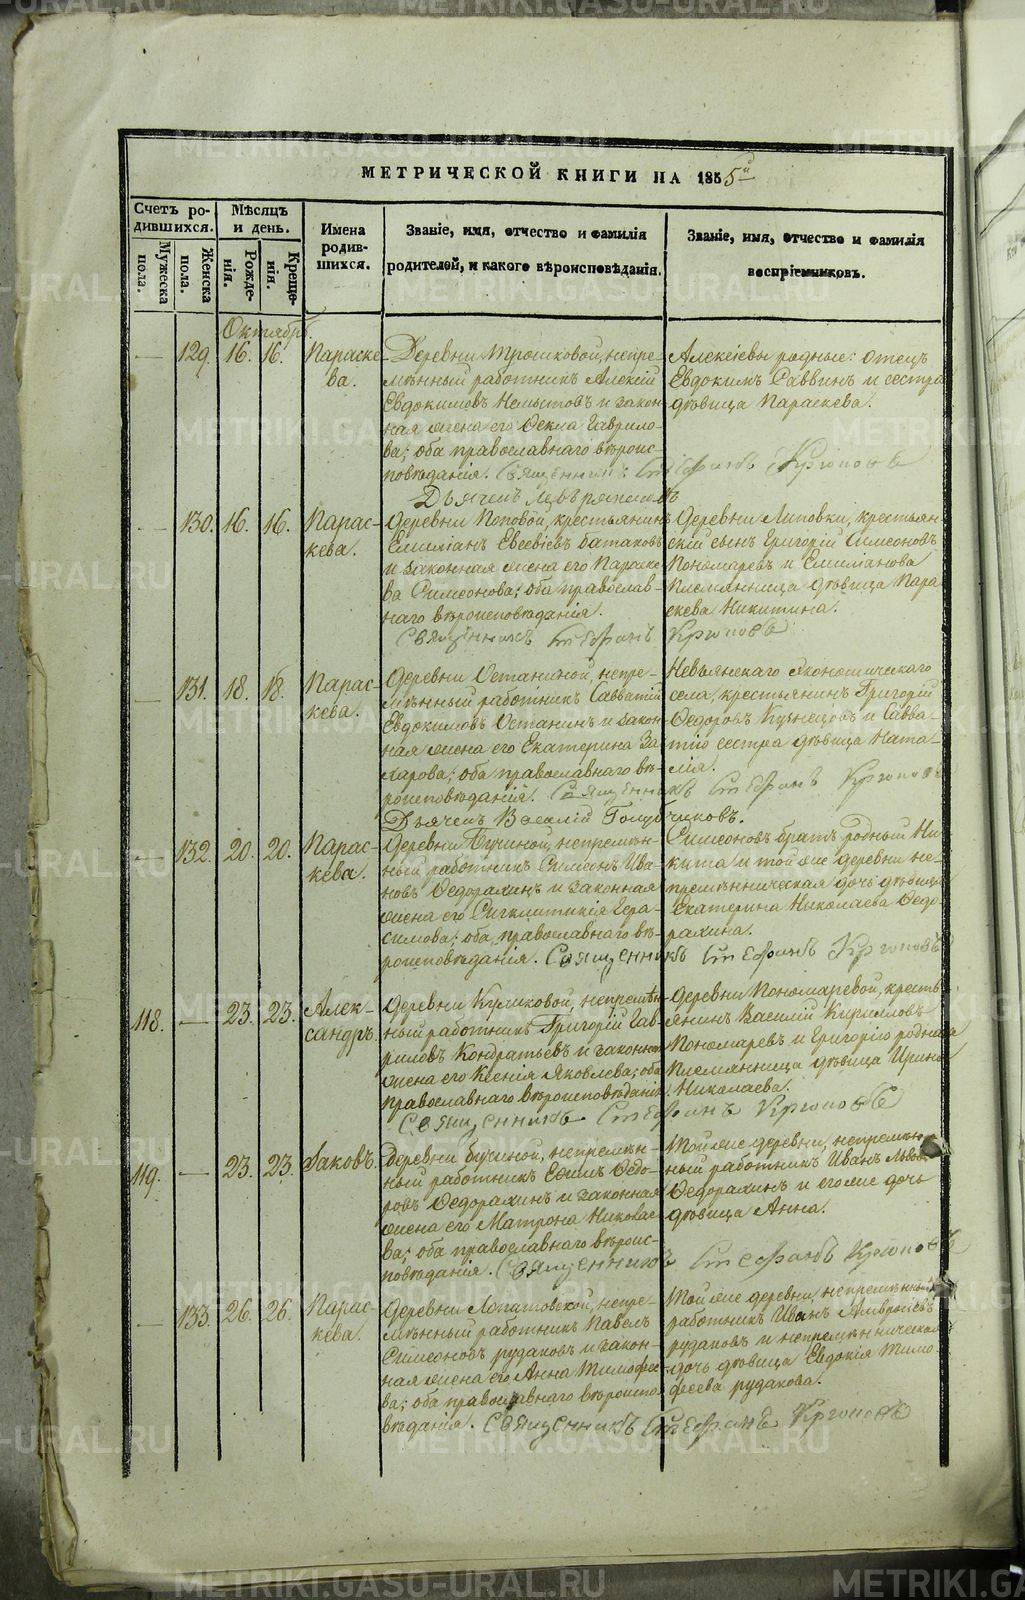 МЕТРИЧЕСКОЙ КНИГИ НА 1855й
Счетъ ро-
дившихся.
Мужеска
пола.
Женска
пола.
Мѣсяцъ
и день.
Рожде-
нія.
Креще-
нія.
Имена
родив-
шихся.
Званіе, имя, отчество и фамилія
родителей, и какого вѣроисповѣданія.
Званіе, имя, отчество и фамилія
воспріемниковъ.
Октябрь
— 129. 16. 16.
Параске-
ва.
Деревни Трошковой, непре-
мѣнный работникъ Алексій
Евдокимовъ Немытовъ и закон-
ная жена его Ѳекла Гаврило-
ва; оба православнаго вѣроис-
повѣданія. Священникъ Стефанъ Крюковъ
Дьячекъ
Алексіевы родные: отецъ
Евдокимъ Саввинъ и сестра
дѣвица Параскева.
— 130. 16. 16.
Парас-
кева.
Деревни Поповой, крестьянинъ
Емиліанъ Евсевіевъ Батаковъ
и законная жена его Параске-
ва Симеонова; оба православ-
наго вѣроисповѣданія.
Священникъ Стефанъ Крюковъ
Деревни Липовки, крестьян-
скій сынъ Григорій Симеоновъ
Пономаревъ и Емиліанова
племянница дѣвица Пара-
скева Никитина.
— 131. 18. 18.
Парас-
кева.
Деревни Останиной, непре-
мѣнный работникъ Савватій
Евдокимовъ Останинъ и закон-
ная жена его Екатерина За-
харова; оба православнаго вѣ-
роисповѣданія. Священникъ Стефанъ Крюковъ
Дьячекъ Василій Голубчиковъ.
Невьянскаго экономическаго
села, крестьянинъ Григорій
Ѳедоровъ Кузнецовъ и Савва-
тію сестра дѣвица Ната-
лія.
— 132. 20. 20.
Парас-
кева.
Деревни Бучиной, непремѣн-
ный работникъ Симеонъ Ива-
новъ Ѳедорахинъ и законная
жена его Сигклитикія Гера-
симова; оба православнаго вѣ-
роисповѣданія. Священникъ Стефанъ Крюковъ
Симеоновъ братъ родный Ни-
кита и той же деревни не-
премѣнническая дочь дѣвица
Екатерина Николаева Ѳедо-
рахина.
118. — 23. 23.
Алек-
сандръ.
Деревни Куликовой, непремѣн-
ный работникъ Григорій Гав-
риловъ Кондратьевъ и законная
жена его Ксенія Яковлева; оба
православнаго вѣроисповѣданія.
Священникъ Стефанъ Крюковъ
Деревни Пономаревой, кресть-
янинъ Василій Кирилловъ
Пономаревъ и Григорію родная
племянница дѣвица Ирина
Николаева.
119. — 23. 23.
Іаковъ.
Деревни Бучиной, непремѣн-
ный работникъ Ефимъ Ѳедо-
ровъ Ѳедорахинъ и законная
жена его Матрона Николае-
ва; оба православнаго вѣроис-
повѣданія. Священникъ Стефанъ Крюковъ
Той же деревни, непремѣн-
ный работникъ Иванъ Львовъ
Ѳедорахинъ и его же дочь
дѣвица Анна.
— 133. 26. 26.
Парас-
кева.
Деревни Лопатовской, непре-
мѣнный работникъ Павелъ
Симеоновъ Рудаковъ и закон-
ная жена его Анна Тимофее-
ва; оба православнаго вѣроиспо-
вѣданія. Священникъ Стефанъ Крюковъ
Той же деревни, непремѣнный
работникъ Иванъ Амвросіевъ
Рудаковъ и непремѣнническая
дочь дѣвица Евдокія Тимо-
феева Рудакова.
METRIKI.GASO-URAL.RU